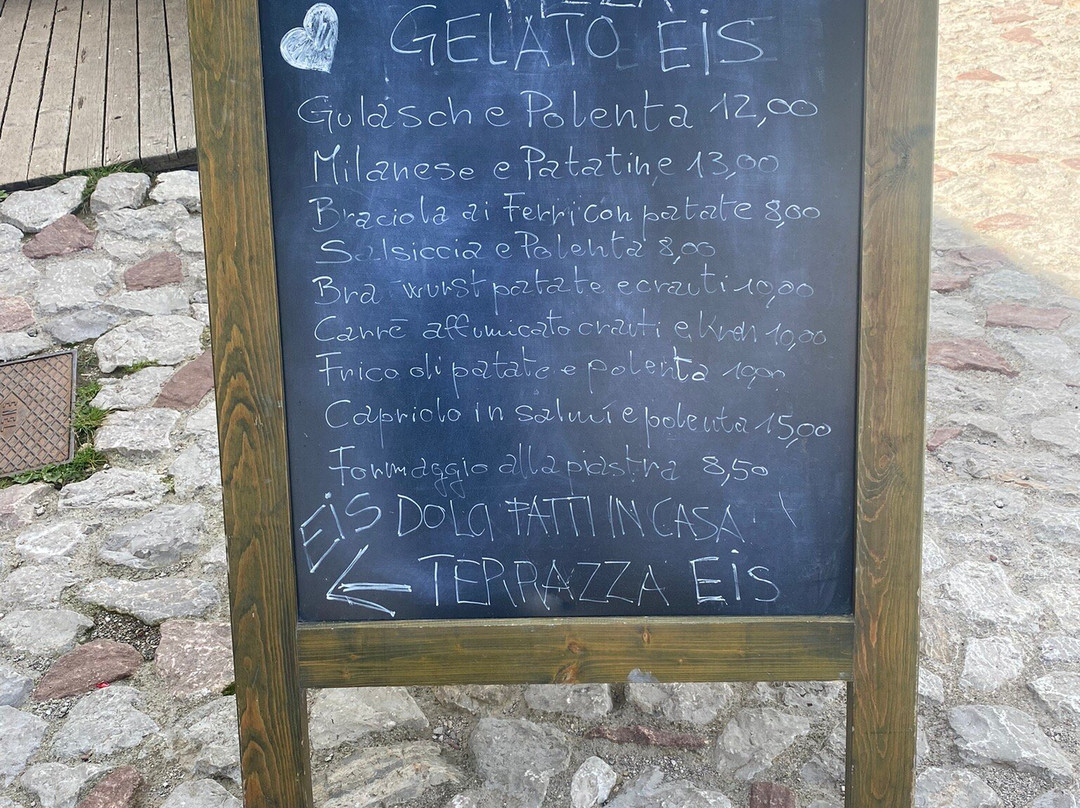 GELATO EiS
Gulasch e Polenta 12,00
Milanese e Patatine 13,00
Braciola ai Ferri con patate 8,00
Salsiccia e Polenta 8,00
Bra wurst patate e crauti 10,00
Carrē affumicato crauti e Kren 10,00
Frico di patate e polenta 10,00
Capriolo in salmí e polenta 15,00
Formaggio alla piastra 8,50
EiS DOLCI FATTI IN CASA
TERRAZZA EiS